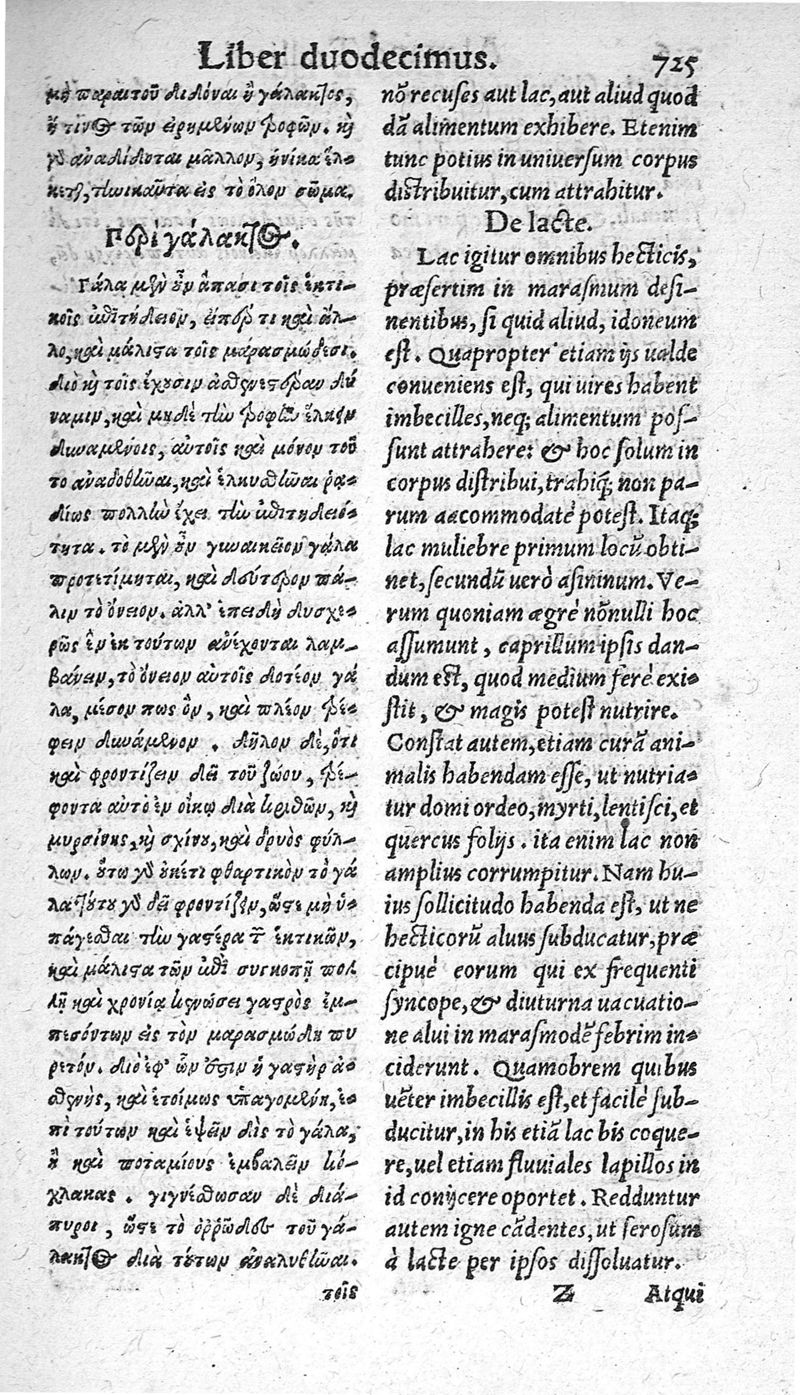 Liber duodecimus. 725
μὴ παραιτοῦ διδόναι ἢ γάλακτος,
ἤ τινος τῶν εἰρημένων τροφῶν. καὶ
γὰρ ἀναδίδοται μᾶλλον, ἡνίκα ἕλ-
κεται, τηνικαῦτα εἰς τὸ ὅλον σῶμα.
Περὶ γάλακτος.
Γάλα μὲν οὖν ἅπασι τοῖς ἑκτι-
κοῖς ἐπιτήδειον, εἴπερ τι καὶ ἄλ-
λο, καὶ μάλιστα τοῖς μαρασμώδεσι.
διὸ καὶ τοῖς ἔχουσιν ἀσθενεστέραν δύ
ναμιν, καὶ μηδὲ τὴν τροφὴν ἕλκειν
δυναμένοις, αὐτοῖς καὶ μόνον τοῦ
το ἀναδοθῆναι, καὶ ἑλκυσθῆναι ῥα-
δίως πολλὴν ἔχει τὴν ἐπιτηδειό-
τητα. τὸ μὲν οὖν γυναικεῖον γάλα
προτετίμηται, καὶ δεύτερον πά-
λιν τὸ ὄνειον. ἀλλ' ἐπειδὴ δυσχε-
ρῶς ἔνιοι τούτων ἀνέχονται λαμ-
βάνειν, τὸ ὄνειον αὐτοῖς δοτέον γά
λα, μέσον πως ὂν, καὶ πλέον τρέ-
φειν δυνάμενον. δῆλον δὲ, ὅτι
καὶ φροντίζειν δεῖ τοῦ ζώου, τρέ-
φοντα αὐτὸ ἐν οἴκῳ διὰ κριθῶν, καὶ
μυρσίνης, καὶ σχίνου, καὶ δρυὸς φύλ-
λων. οὕτω γὰρ οὐκέτι φθαρτικὸν τὸ γά
λα. τούτου γὰρ δεῖ φροντίζειν, ὥστε μὴ ὑ-
πάγεσθαι τὴν γαστέρα τῶν ἑκτικῶν,
καὶ μάλιστα τῶν ἐπὶ συγκοπῇ πολ
λῇ καὶ χρονίᾳ κενώσει γαστρὸς ἐμ-
πεσόντων εἰς τὸν μαρασμώδη πυ
ρετόν. διὸ ἐφ' ὧν ἐστιν ἡ γαστὴρ ἀ-
σθενὴς, καὶ ἑτοίμως ὑπαγομένη, ἐ-
πὶ τούτων καὶ ἑψεῖν δὶς τὸ γάλα,
ἢ καὶ ποταμίους ἐμβαλεῖν κό-
χλακας. γιγνέσθωσαν δὲ διά-
πυροι, ὥστε τὸ ὀρρῶδες τοῦ γά-
λακτος διὰ τούτων ἀναλυθῆναι.
τοῖς
nō recuses aut lac, aut aliud quod
dā alimentum exhibere. Etenim
tunc potius in uniuersum corpus
distribuitur, cum attrahitur.
De lacte.
Lac igitur omnibus hecticis,
præsertim in marasmum desi-
nentibus, si quid aliud, idoneum
est. Quapropter etiam ijs ualde
conueniens est, qui uires habent
imbecilles, neq; alimentum pos-
sunt attrahere: & hoc solum in
corpus distribui, trahiq; non pa-
rum accommodatè potest. Itaq;
lac muliebre primum locū obti-
net, secundū uerò asininum. Ve-
rum quoniam ægrè nōnulli hoc
assumunt, caprillum ipsis dan-
dum est, quod medium ferè exi-
stit, & magis potest nutrire.
Constat autem, etiam curā ani-
malis habendam esse, ut nutria-
tur domi ordeo, myrti, lentisci, et
quercus folijs. ita enim lac non
amplius corrumpitur. Nam hu-
ius sollicitudo habenda est, ut ne
hecticorū aluus subducatur, præ
cipuè eorum qui ex frequenti
syncope, & diuturna uacuatio-
ne alui in marasmodē febrim in-
ciderunt. Quamobrem quibus
uēter imbecillis est, et facilè sub-
ducitur, in his etiā lac bis coque-
re, uel etiam fluuiales lapillos in
id conijcere oportet. Redduntur
autem igne cādentes, ut serosum
à lacte per ipsos dissoluatur.
Z Atqui